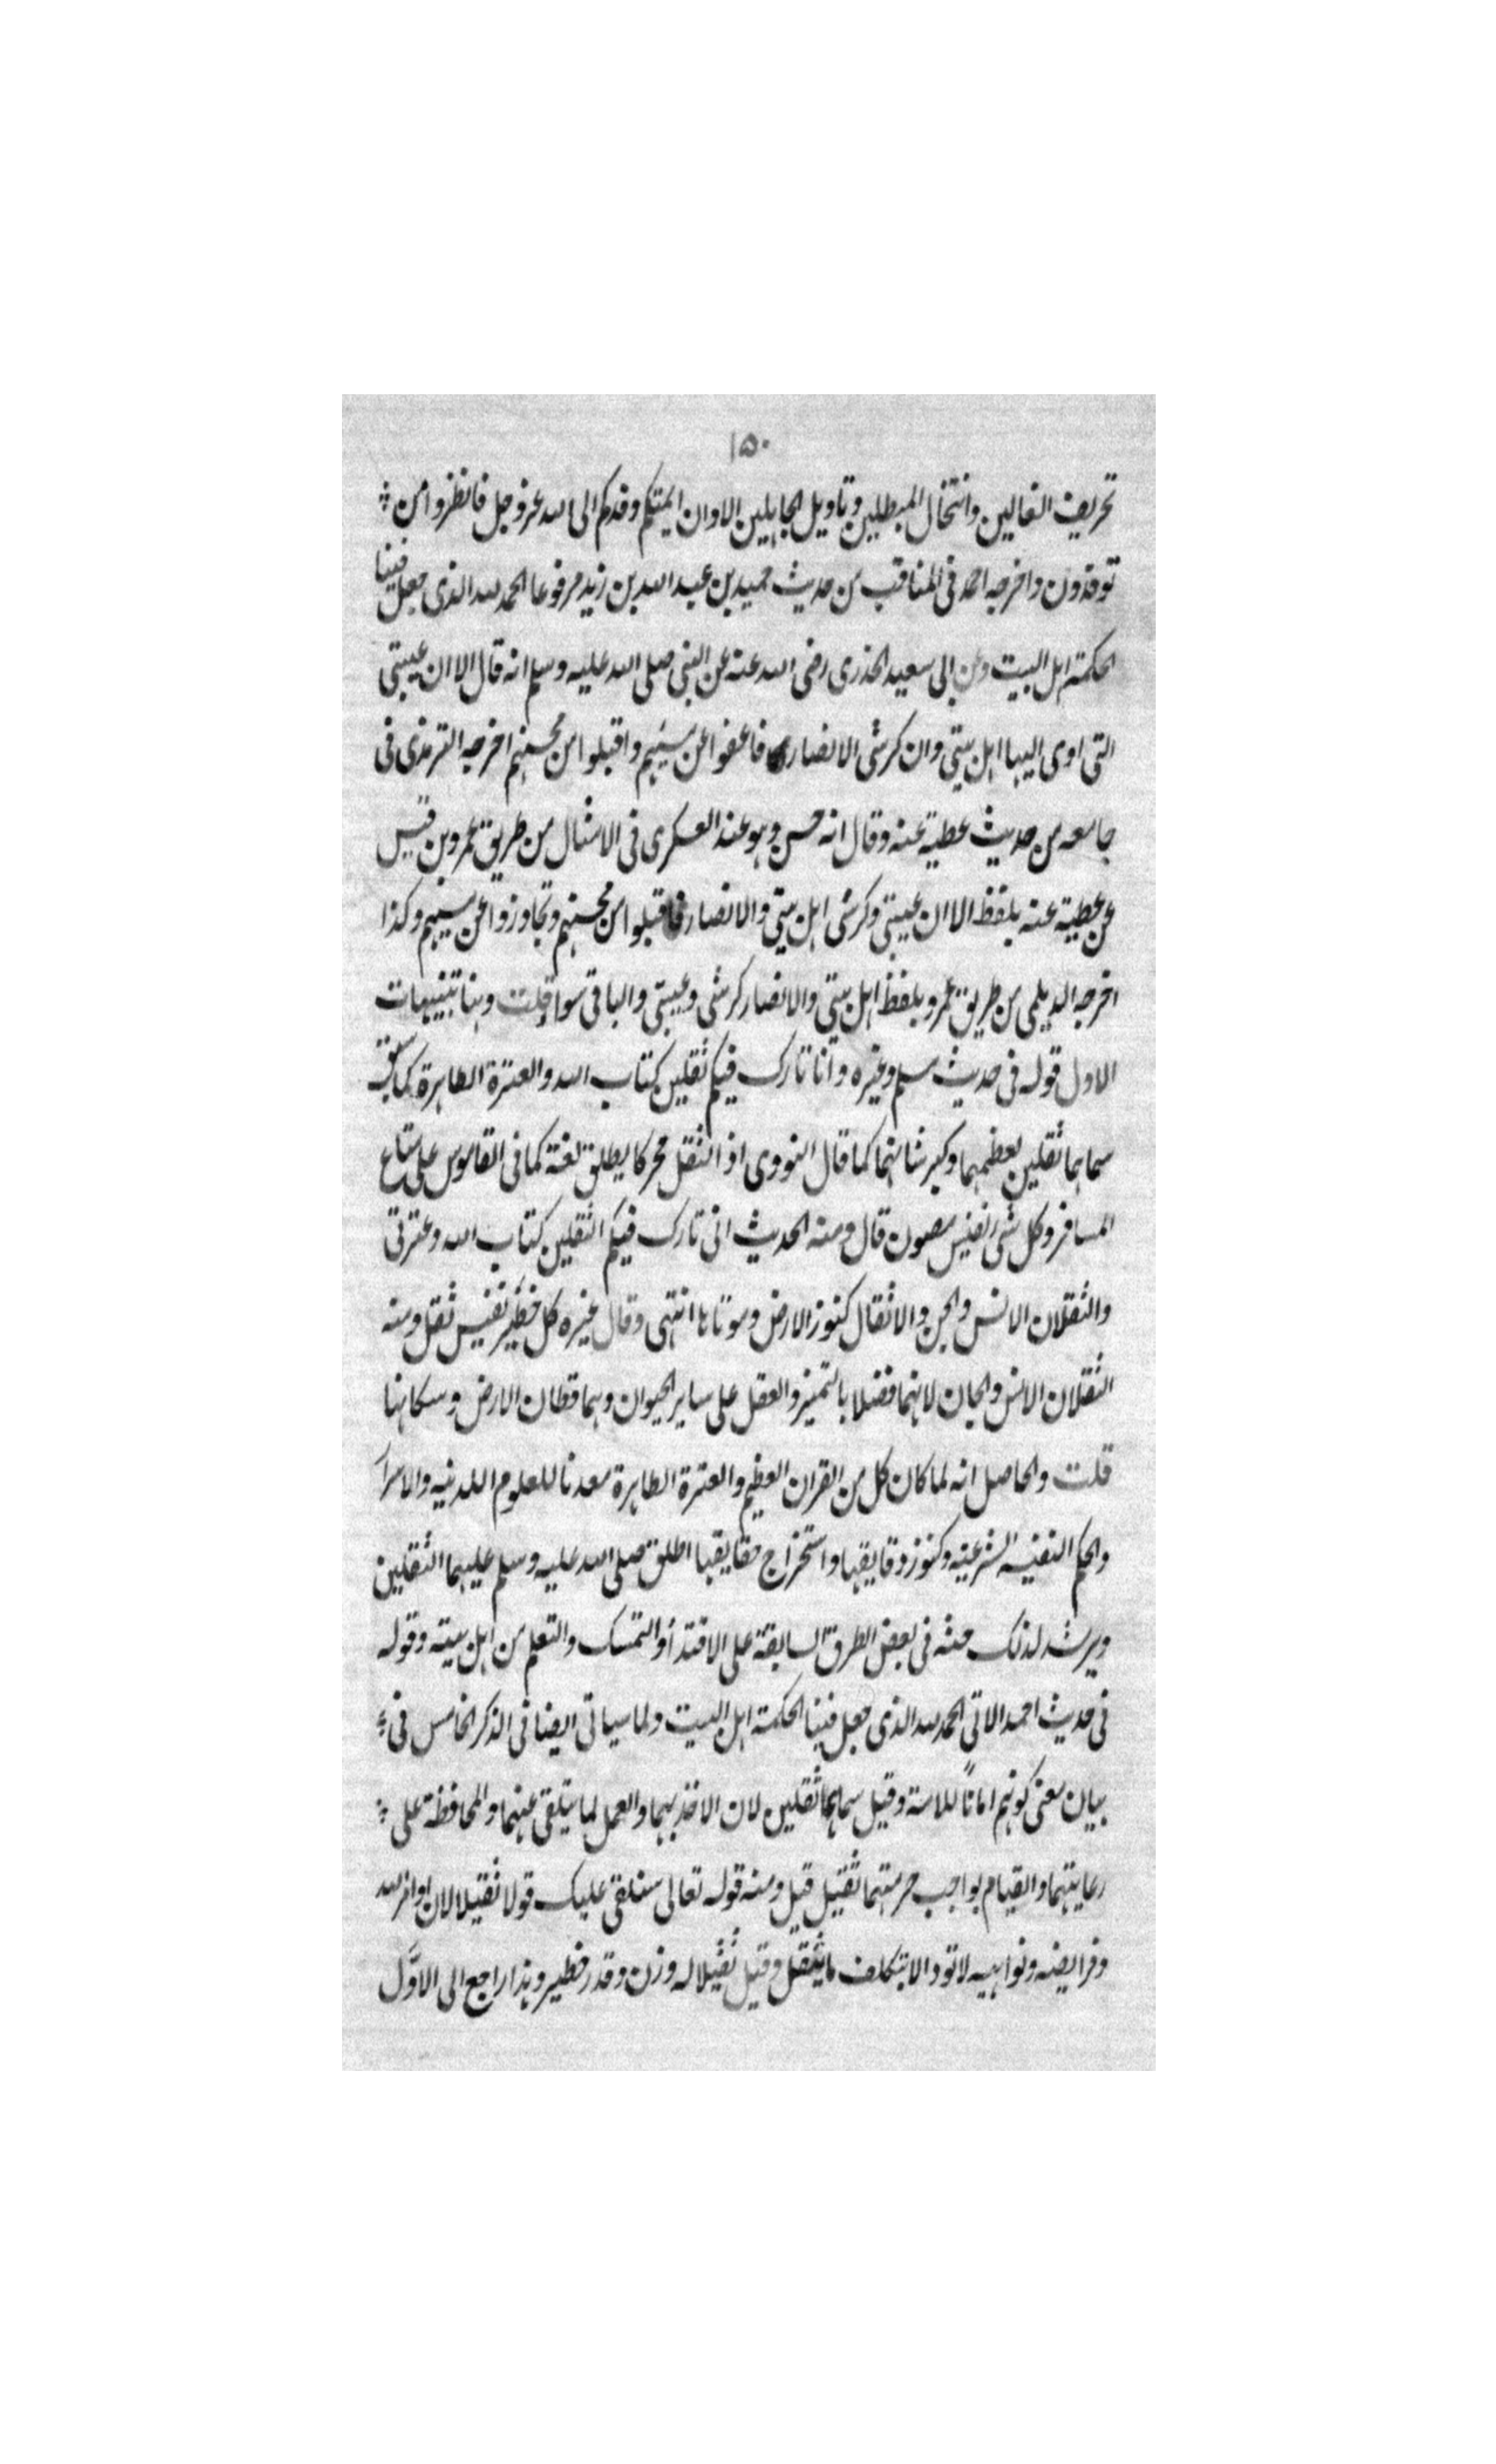 ١٥٠
تحريف الغالين وانتحال المبطلين وتاويل الجاهلين الا وان ايمتكم وفدكم الى الله عز وجل فانظروا من
توفدون واخرجه احمد فى المناقب من حديث حميد بن عبد الله بن زيد مرفوعا الحمد لله الذى جعل فينا
الحكمة اهل البيت وعن ابى سعيد الخدرى رضى الله عنه عن النبى صلى الله عليه وسلم انه قال الا ان عيبتى
التى اوى اليها اهل بيتى وان كرشى الانصار فاعفوا عن مسيئهم واقبلوا من محسنهم اخرجه الترمذى فى
جامعه من حديث عطية عنه وقال انه حسن وهو عند العسكرى فى الامثال من طريق عمرو بن قيس
عن عطية عنه بلفظ الا ان عيبتى وكرشى اهل بيتى والانصار فاقبلوا من محسنهم وتجاوزوا عن مسيئهم وكذا
اخرجه الديلمى من طريق عمرو بلفظ اهل بيتى والانصار كرشى وعيبتى والباقى سواء قلت وهنا تنبيهات
الاول قوله فى حديث مسلم وغيره وانا تارك فيكم ثقلين كتاب الله والعترة الطاهرة كما سبق
سماهما ثقلين لعظمهما وكبر شانهما كما قال النووى اذ الثقل محركا يطلق لغة كما فى القاموس على متاع
المسافر وكل شىء نفيس مصون قال ومنه الحديث انى تارك فيكم الثقلين كتاب الله وعترتى
والثقلان الانس والجن والاثقال كنوز الارض وموتاها انتهى وقال غيره كل خطير نفيس ثقل ومنه
الثقلان الانس والجان لانهما فضلا بالتميز والعقل على ساير الحيوان وهما قطان الارض وسكانها
قلت والحاصل انه لما كان كل من القران العظيم والعترة الطاهرة معدنا للعلوم اللدنيه والاسرار
والحكم النفيسه الشرعيه وكنوز دقايقها واستخراج حقايقها اطلق صلى الله عليه وسلم عليهما الثقلين
ويرشد لذلك حثه فى بعض الطرق السابقة على الاقتداء والتمسك والتعلم من اهل بيته وقوله
فى حديث احمد الاتى الحمد لله الذى جعل فينا الحكمة اهل البيت ولما سياتى ايضا فى الذكر الخامس فى
بيان معنى كونهم امانًا للامة وقيل سماهما ثقلين لان الاخذ بهما والعمل بما يتلقى عنهما والمحافظة على
رعايتهما والقيام بواجب حرمتهما ثقيل قيل ومنه قوله تعالى سنلقى عليك قولا ثقيلا لان اوامر الله
وفرايضه ونواهيه لا تودا الا بتكلف ما يثقل وقيل ثقيلا له وزن وقدر خطير وهذا راجع الى الاوّل